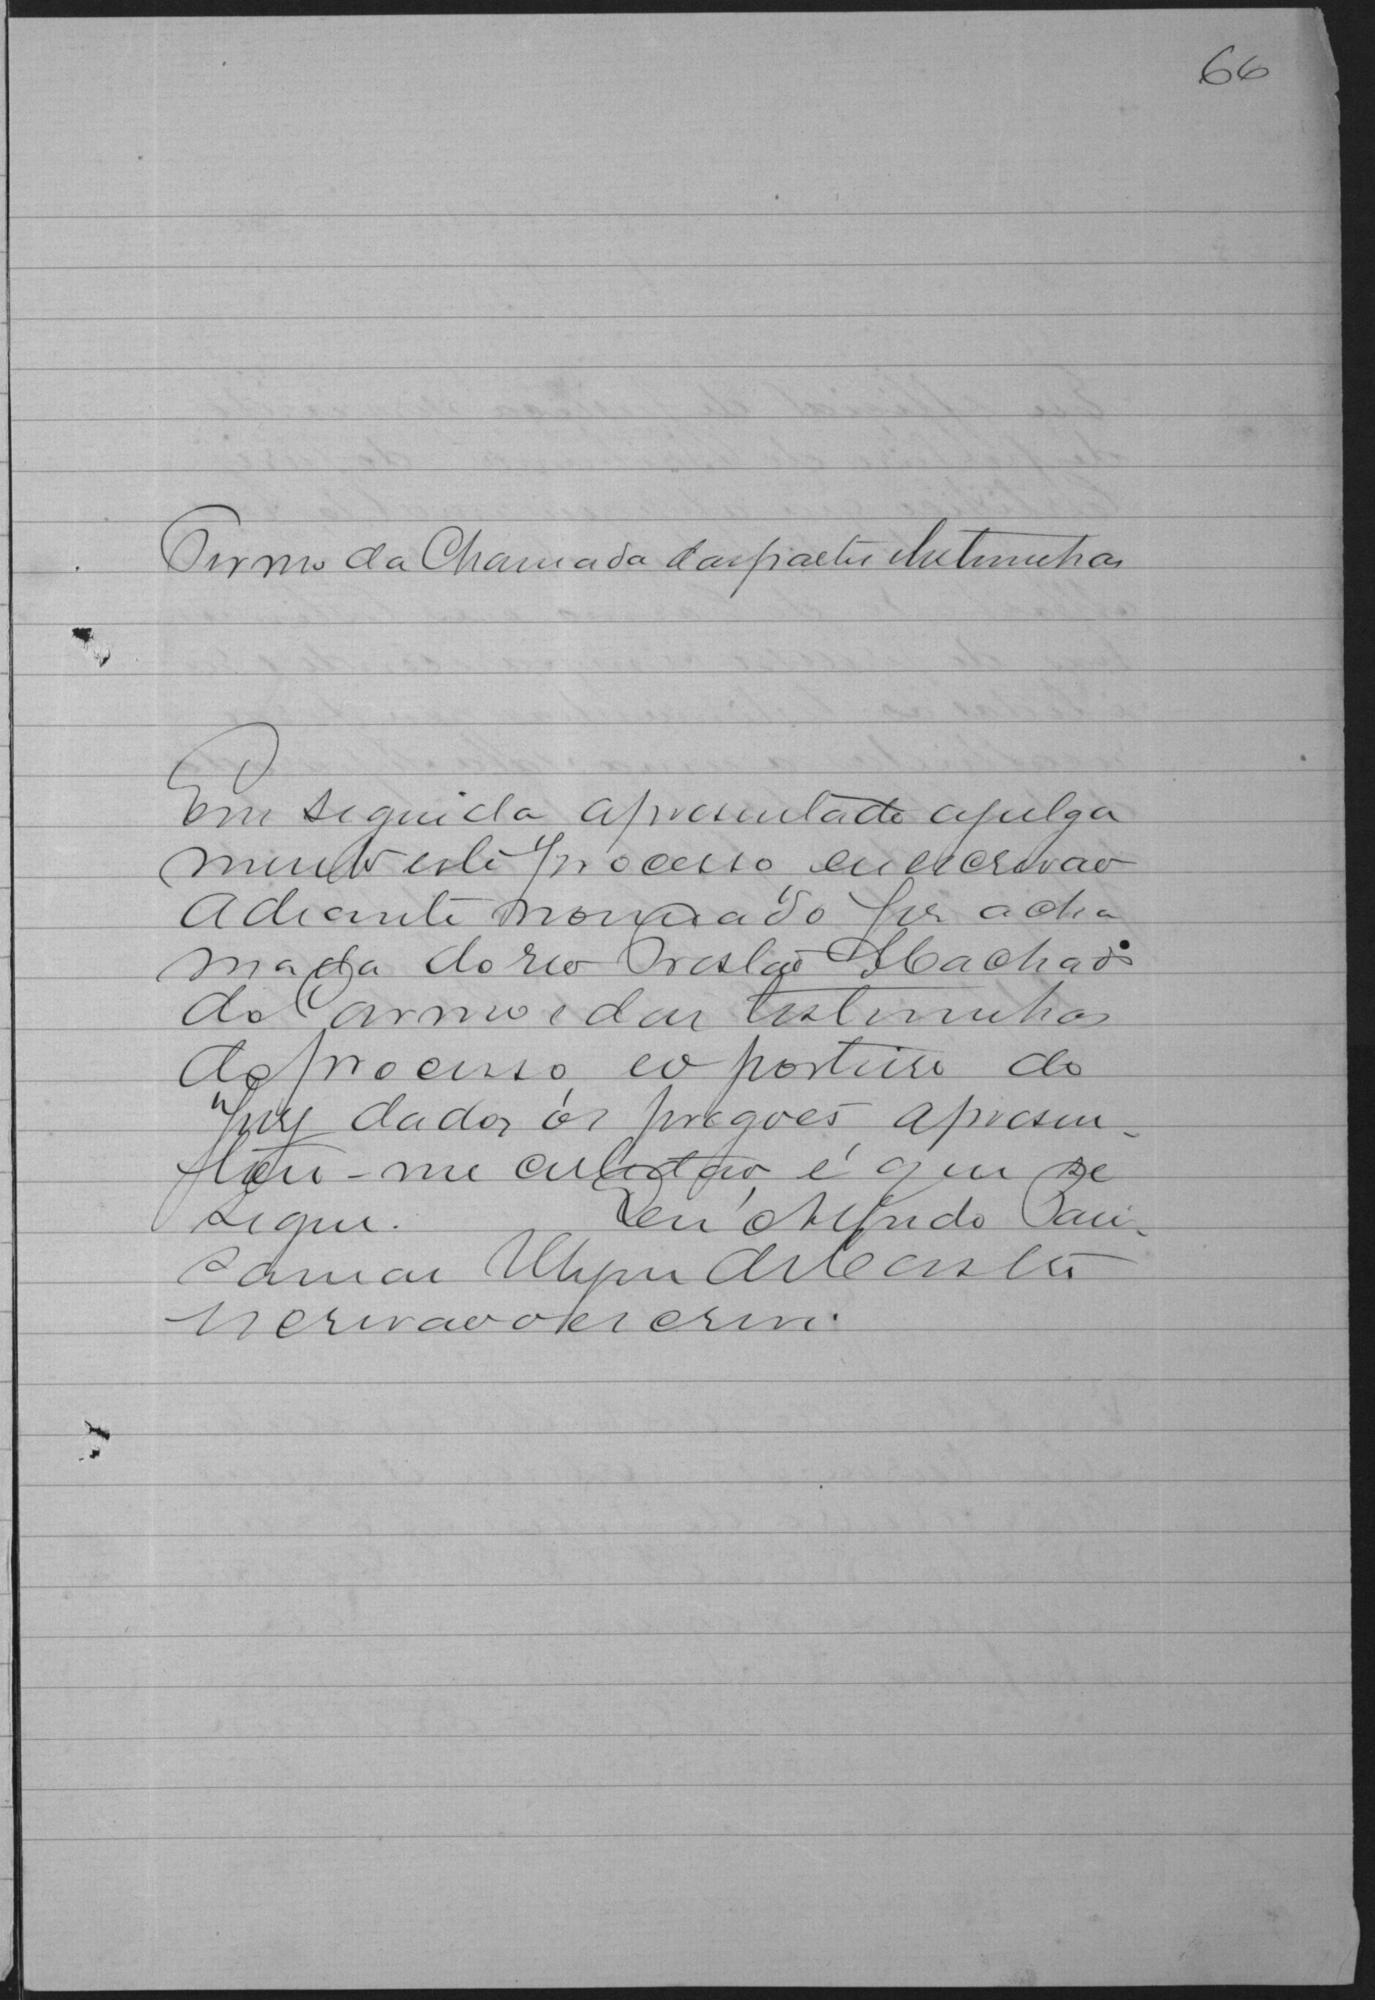 66
Termo da Chamada das partes e testemunhas
Em seguida apresentado a julga
mento este processo eu escrivão
adiante nomeado fiz a cha
mada do reo Machado
do Carmo e das testemunhas
do processo, e o porteiro do
Jury dados os pregoes apresen-
tou-me certidão, é que se
segue. Eu Alfredo
de Castro
escrivão o escrevi.